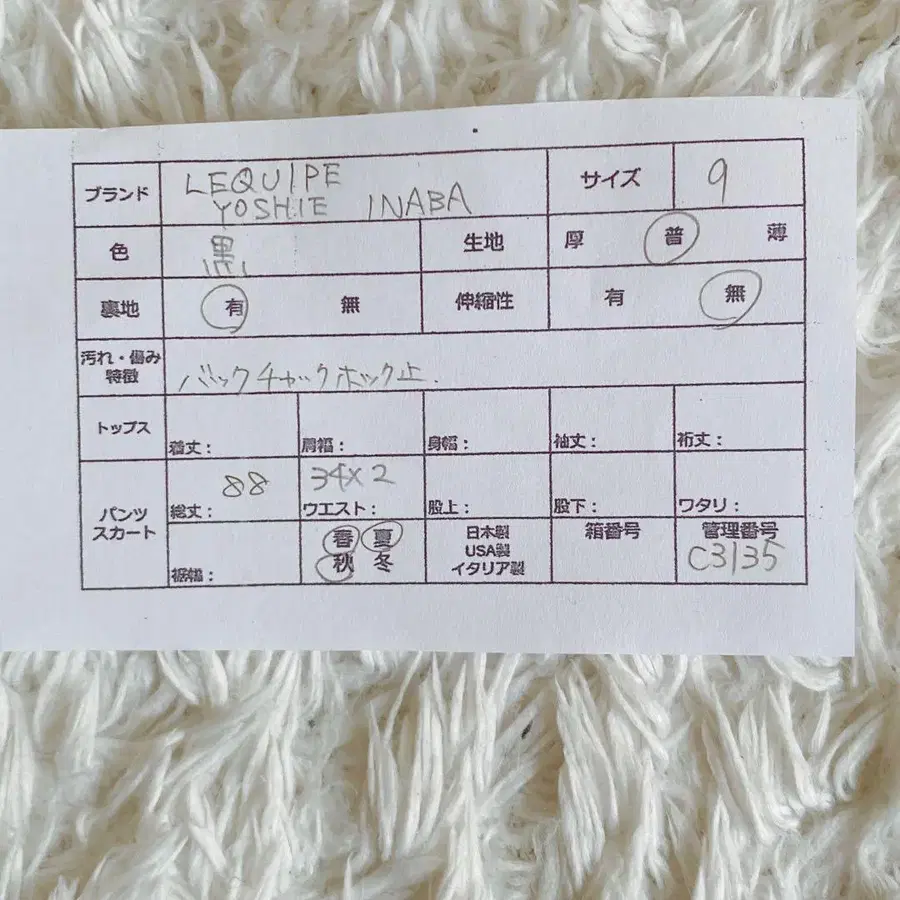 ブランド LEQUIPE サイズ 9
YOSHIE INABA
色 黒 生地 厚 普 薄
裏地 有 無 伸縮性 有 無
汚れ・傷み
特徴 バックチャックホック止.
トップス 着丈: 肩幅: 身幅: 袖丈: 裄丈:
パンツ
スカート 総丈: 88 ウエスト: 34×2 股上: 股下: ワタリ:
裾幅: 春 夏
秋 冬
日本製
USA製
イタリア製
箱番号 管理番号
C3135